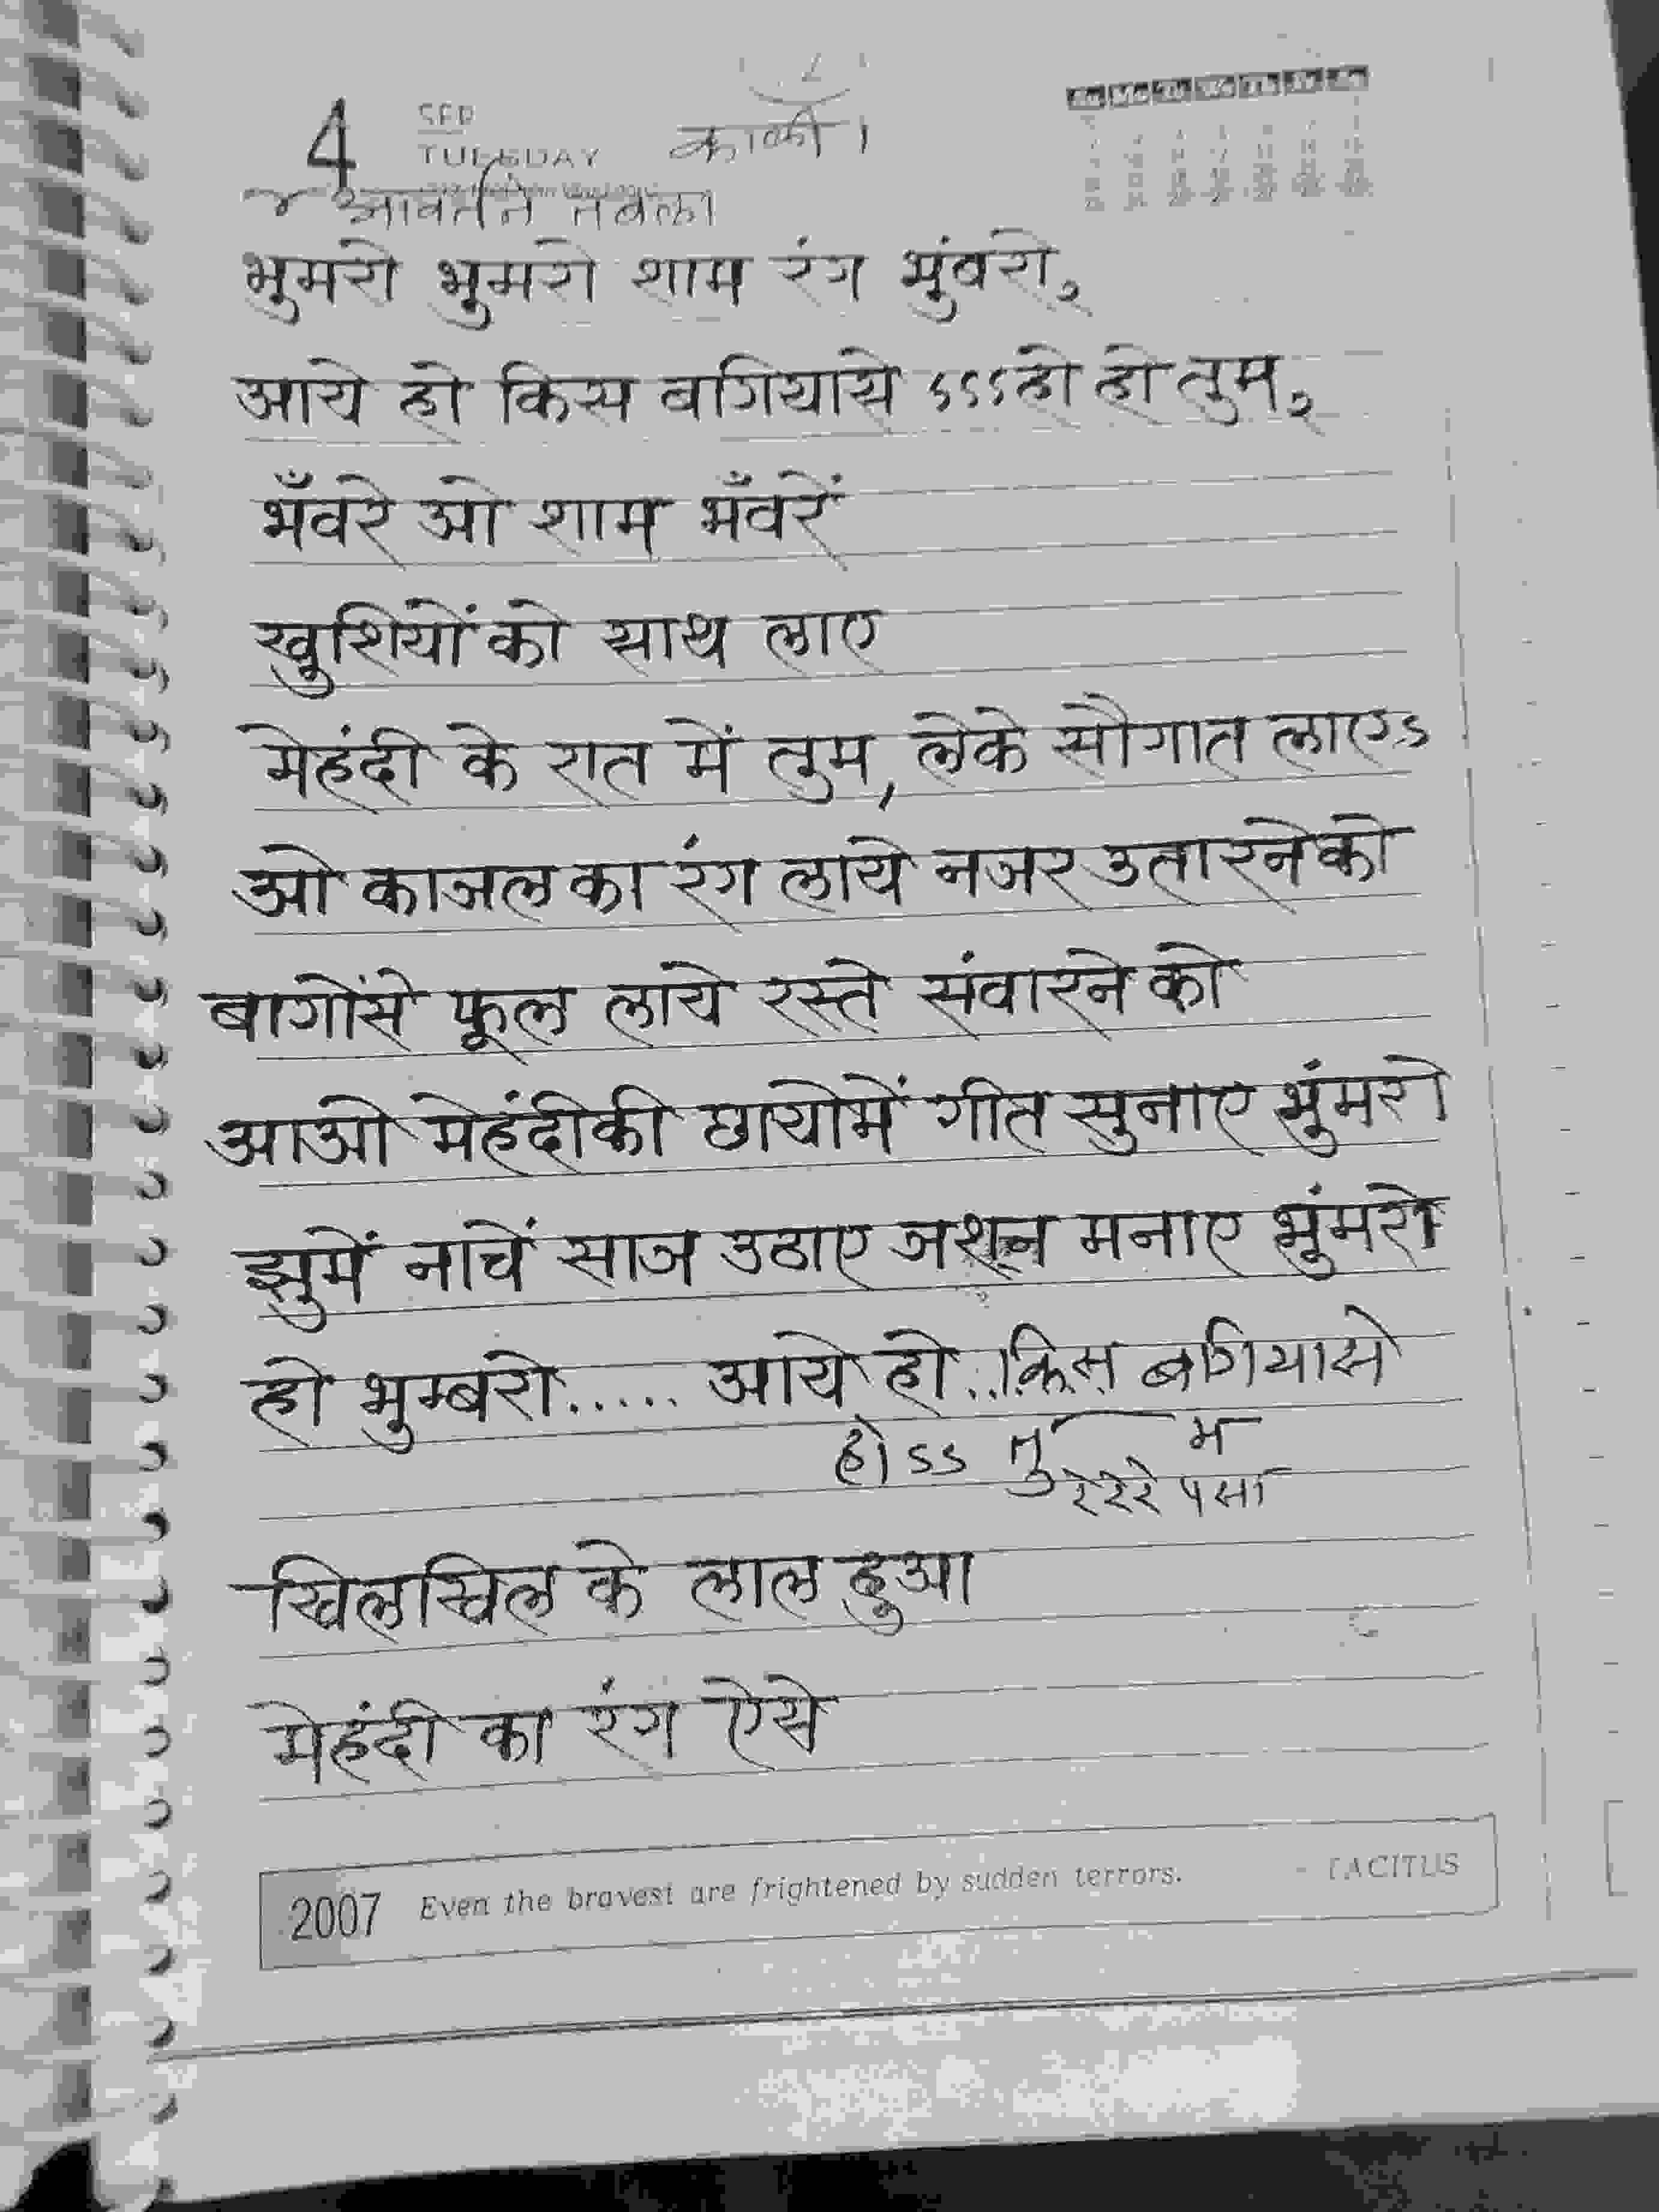 4 SEP
TUESDAY काळी १
४ आवर्तने तबला
भुमरो भुमरो शाम रंग भुंवरो२
आये हो किस बगियासे ऽऽऽहो हो तुम२
भँवरे ओ शाम भँवरें
खुशियों को साथ लाए
मेहंदी के रात में तुम, लेके सौगात लाएऽ
ओ काजल का रंग लाये नजर उतारनेको
बागोंसे फूल लाये रस्ते संवारने को
आओ मेहंदीकी छायोमें गीत सुनाए भुंमरो
झुमें नाचें साज उठाए जशन मनाए भुंमरो
हो भुम्बरो..... आये हो...किस बगियासे
होऽऽ तु म
रेरेरे पसा
खिलखिल के लाल हुआ
मेहंदी का रंग ऐसे
2007 Even the bravest are frightened by sudden terrors. - TACITUS